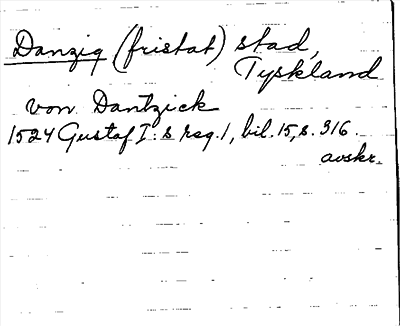 Danzig (fristat) stad,
Tyskland
von Dantzick
1524 Gustaf I:s reg. 1, bil. 15, s. 316.
avskr.